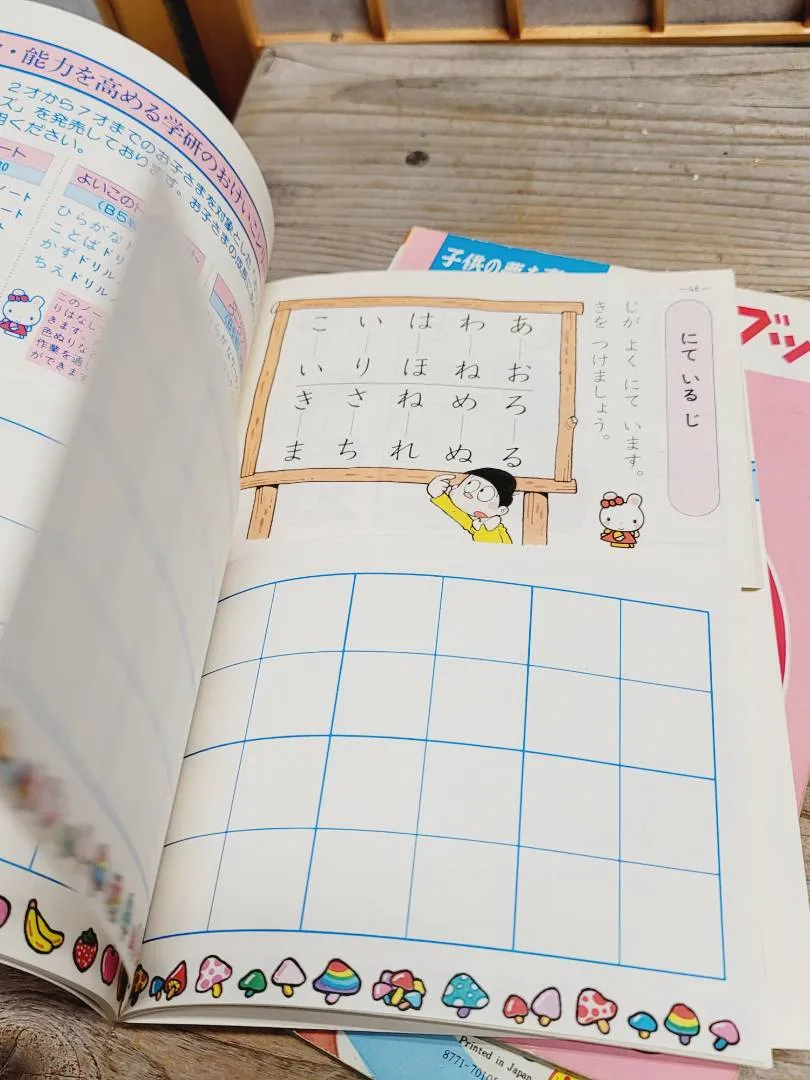 ・能力を高める学研のおけいこ
2才から7才までのお子さまを対象とした
ズ」を発売しております。お子さまの
用ください。
ート
ノート
ート
よいこの
(B5
ひらがな
ことばドリ
かずドリル
ちえドリル
このノー
りはなし
きます
色ぬりな
作業を通し
ができます
子供の夢
ブッ
—48—
にて いる じ
じが よく にて います。
きを つけましょう。
あ—お
わ—ね
は—ほ
い—り
こ—い
ろ—る
め—ぬ
ね—れ
さ—ち
き—ま
Printed in Japan